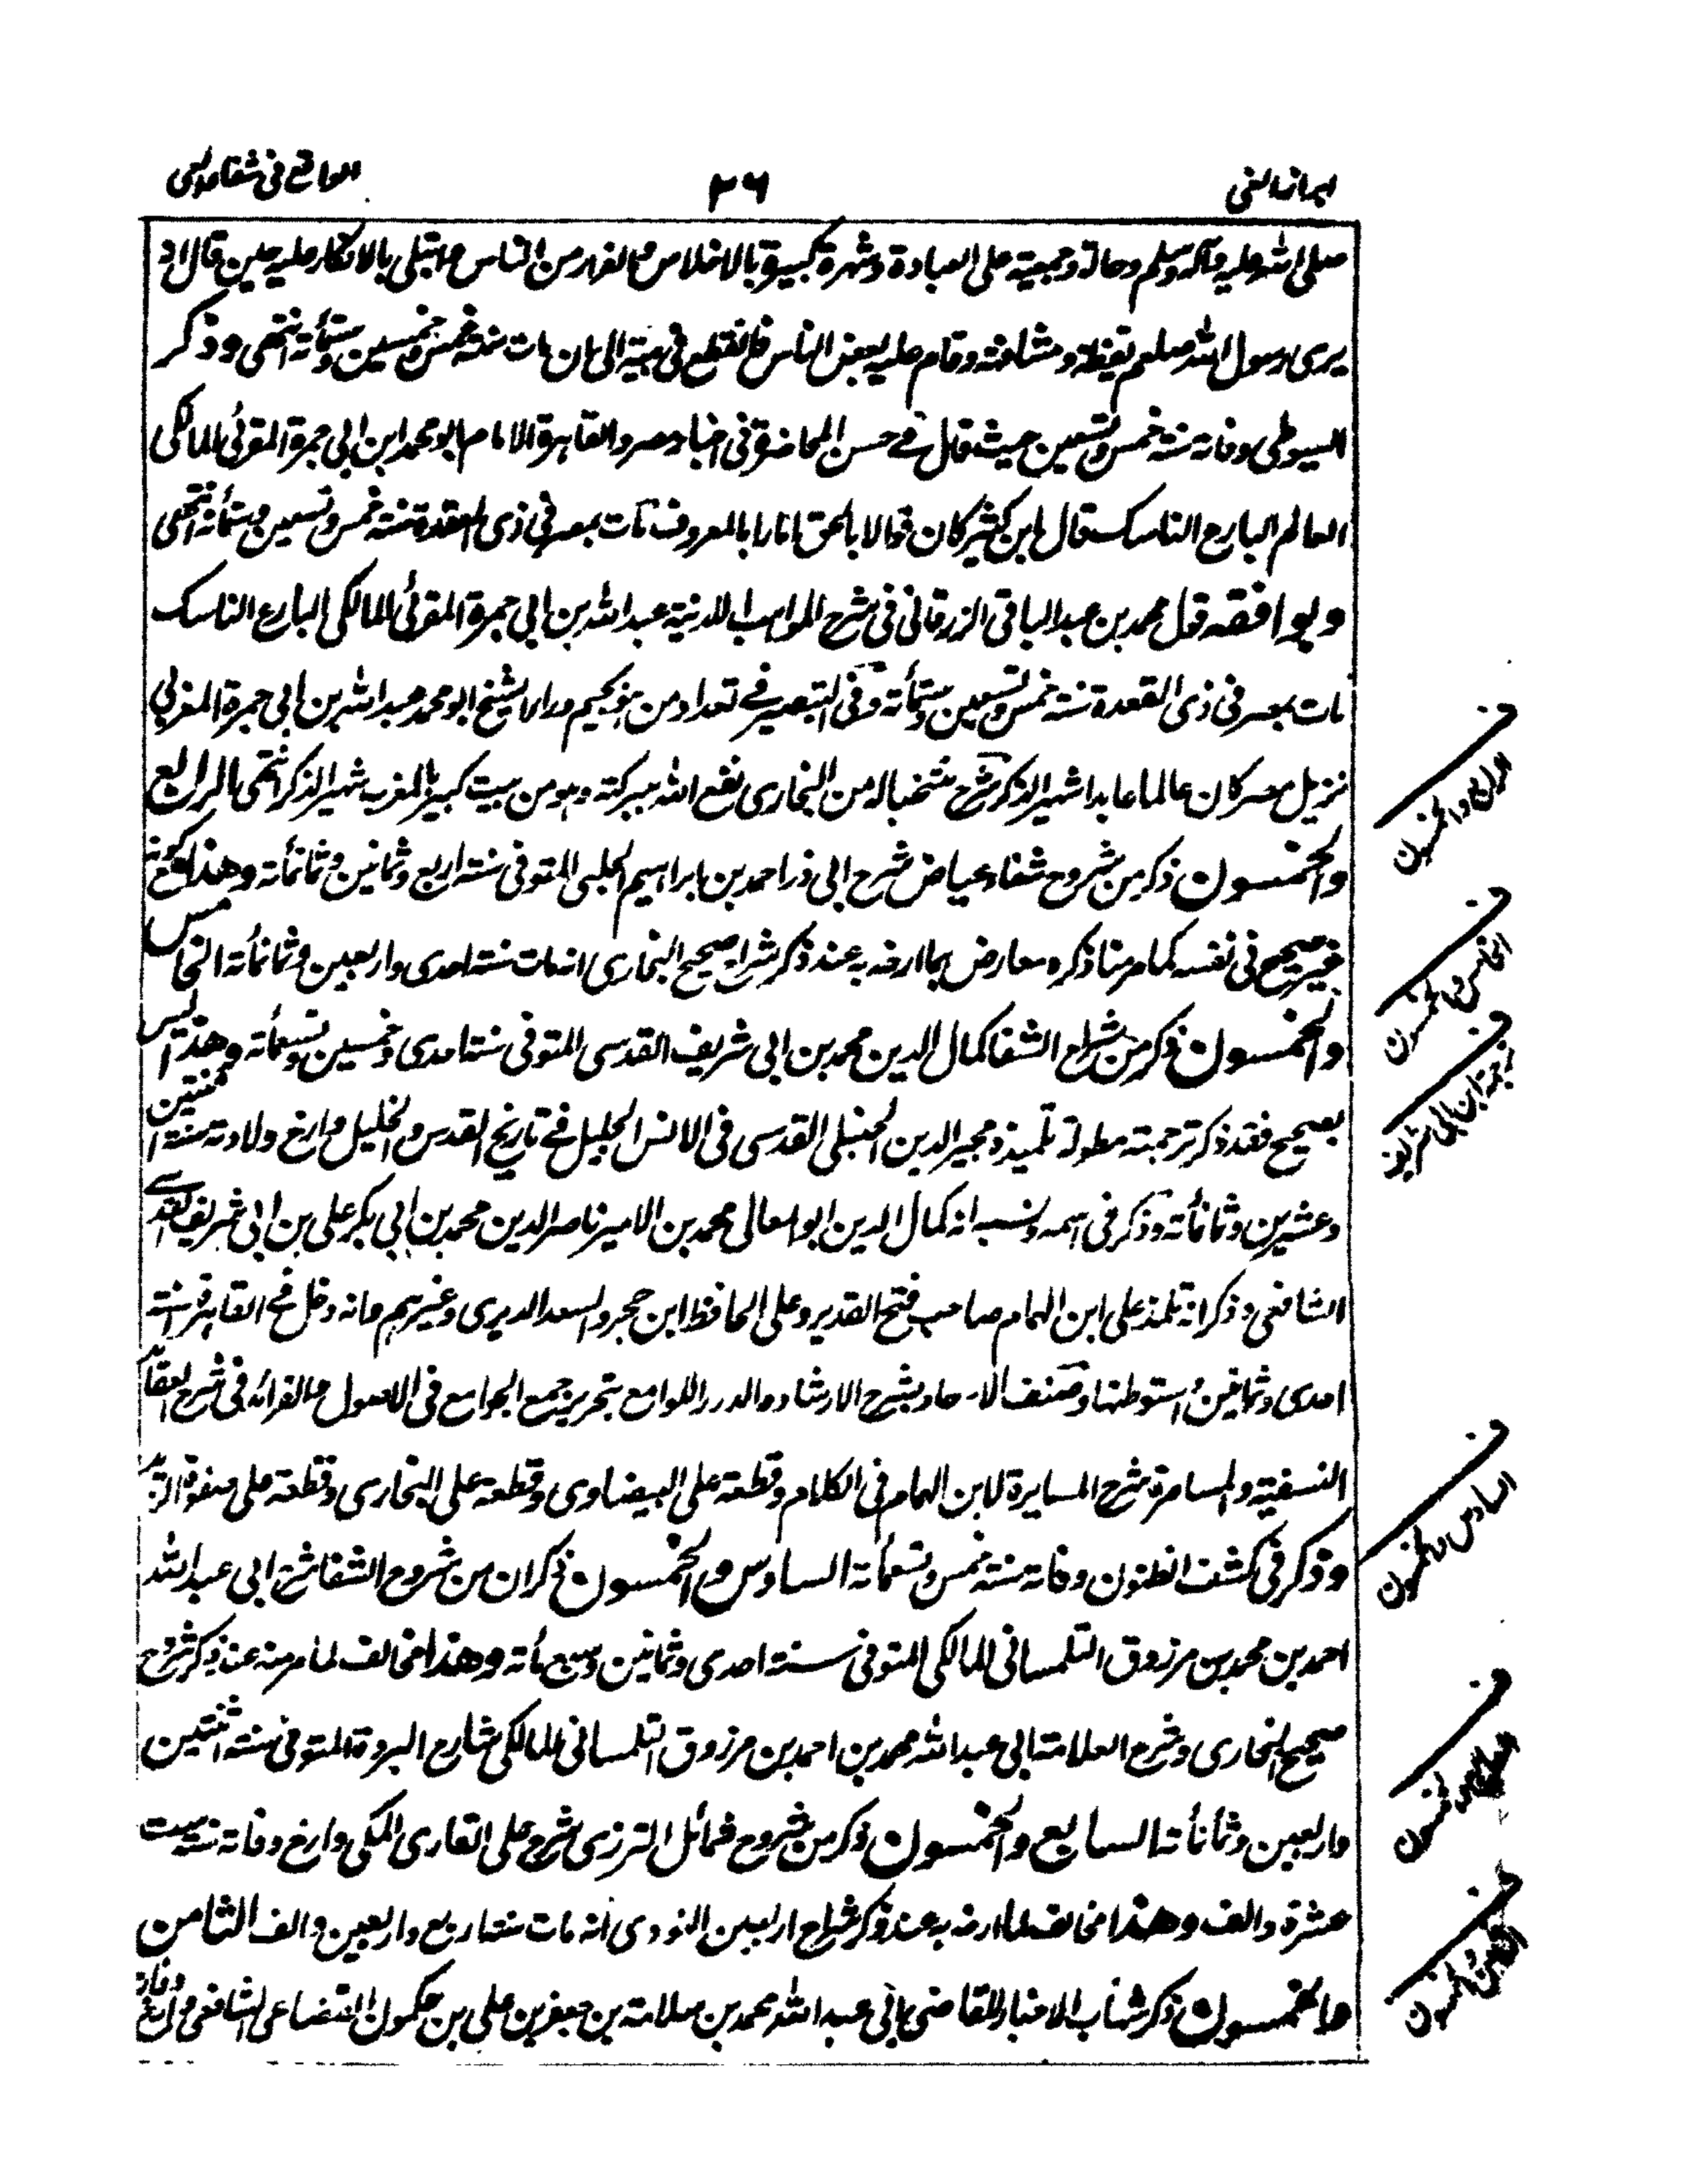 ابراز الغی
٢٦
الواقع فی شفاء العی
صلی الله علیه وآله وسلم وحالة وجمعیة علی العبادة وشهرة کبیرة بالاخلاص والفرار من الناس وابتلی بالانکار علیه حین قال انه
یری رسول الله صلعم یقظة ومشافهة وقام علیه بعض الناس فانقطع فی بیته الی ان مات سنة خمس وخمسین وستمأته انتهی وذکر
السیوطی وفاته سنة خمس وتسعین حیث قال فی حسن المحاضرة فی اخبار مصر والقاهرة الامام ابو محمد ابن ابی جمرة المقرئ المالکی
العالم البارع الناسک قال ابن کثیر کان قوالا بالحق امارا بالمعروف مات بمصر فی ذی القعدة سنة خمس وتسعین وستمأته انتهی
ویوافقه قول محمد بن عبد الباقی الزرقانی فی شرح المواهب اللدنیة عبد الله بن ابی جمرة المقرئ المالکی البارع الناسک
مات بمصر فی ذی القعدة سنة خمس وتسعین وستمأته وفی التبصیر فی تعداد من هو بجیم وراء الشیخ ابو محمد عبد الله بن ابی جمرة المغربی
نزیل مصر کان عالما عابدا شهیر الذکر شرح منتخبا له من البخاری نفع الله ببرکته وهو من بیت کبیر بالمغرب شهیر الذکر انتهی الرابع
والخمسون ذکر من شروح شفاء عیاض شرح ابی ذر احمد بن ابراهیم الحلبی المتوفی سنة اربع وثمانین وثمانمأته وهذا مع کونه
غیر صحیح فی نفسه کما مر منا ذکره معارض بما ارخه به عند ذکر شراح صحیح البخاری انه مات سنة احدی واربعین وثمانمأته الخامس
والخمسون ذکر من شراح الشفا کمال الدین محمد بن ابی شریف القدسی المتوفی سنة احدی وخمسین وتسعمأته وهذا لیس
بصحیح فقد ذکر ترجمته مطولة تلمیذه مجیر الدین الحنبلی القدسی فی الانس الجلیل فی تاریخ القدس والخلیل وارخ ولادته سنة اثنتین
وعشرین وثمانمأته وذکر فی اسمه ونسبه انه کمال الدین ابو المعالی محمد بن الامیر ناصر الدین محمد بن ابی بکر علی بن ابی شریف القدسی
الشافعی وذکر انه تلمذ علی ابن الهمام صاحب فتح القدیر وعلی الحافظ ابن حجر والسعد الدیری وغیرهم وانه دخل فی القاهرة سنة
احدی وثمانین واستوطنها وصنف الاسعاد بشرح الارشاد والدرر اللوامع بتحریر جمع الجوامع فی الاصول والفرائد فی شرح العقائد
النسفیة والمسامرة شرح المسایرة لابن الهمام فی الکلام وقطعة علی البیضاوی وقطعة علی البخاری وقطعة علی صفوة الزبد
وذکر فی کشف الظنون وفاته سنة خمس وتسعمأته السادس والخمسون ذکر ان من شروح الشفا شرح ابی عبد الله
احمد بن محمد بن مرزوق التلمسانی المالکی المتوفی سنة احدی وثمانین وسبع مأته وهذا مخالف لما مر منه عند ذکر شروح
صحیح البخاری وشرح العلامة ابی عبد الله محمد بن احمد بن مرزوق التلمسانی المالکی شارح البردة المتوفی سنة اثنتین
واربعین وثمانمأته السابع والخمسون ذکر من شروح شمائل الترمذی شرح علی القاری المکی وارخ وفاته سنة ست
عشرة والف وهذا مخالف لما ارخه به عند ذکر شراح اربعین النووی انه مات سنة اربع واربعین والف الثامن
والخمسون ذکر شهاب الاخبار للقاضی ابی عبد الله محمد بن سلامة بن جعفر بن علی بن حکمون القضاعی الشافعی وارخ وفاته
الرابع والخمسون
الخامس والخمسون
ترجمة ابن ابی شریف
السادس والخمسون
السابع والخمسون
الثامن والخمسون